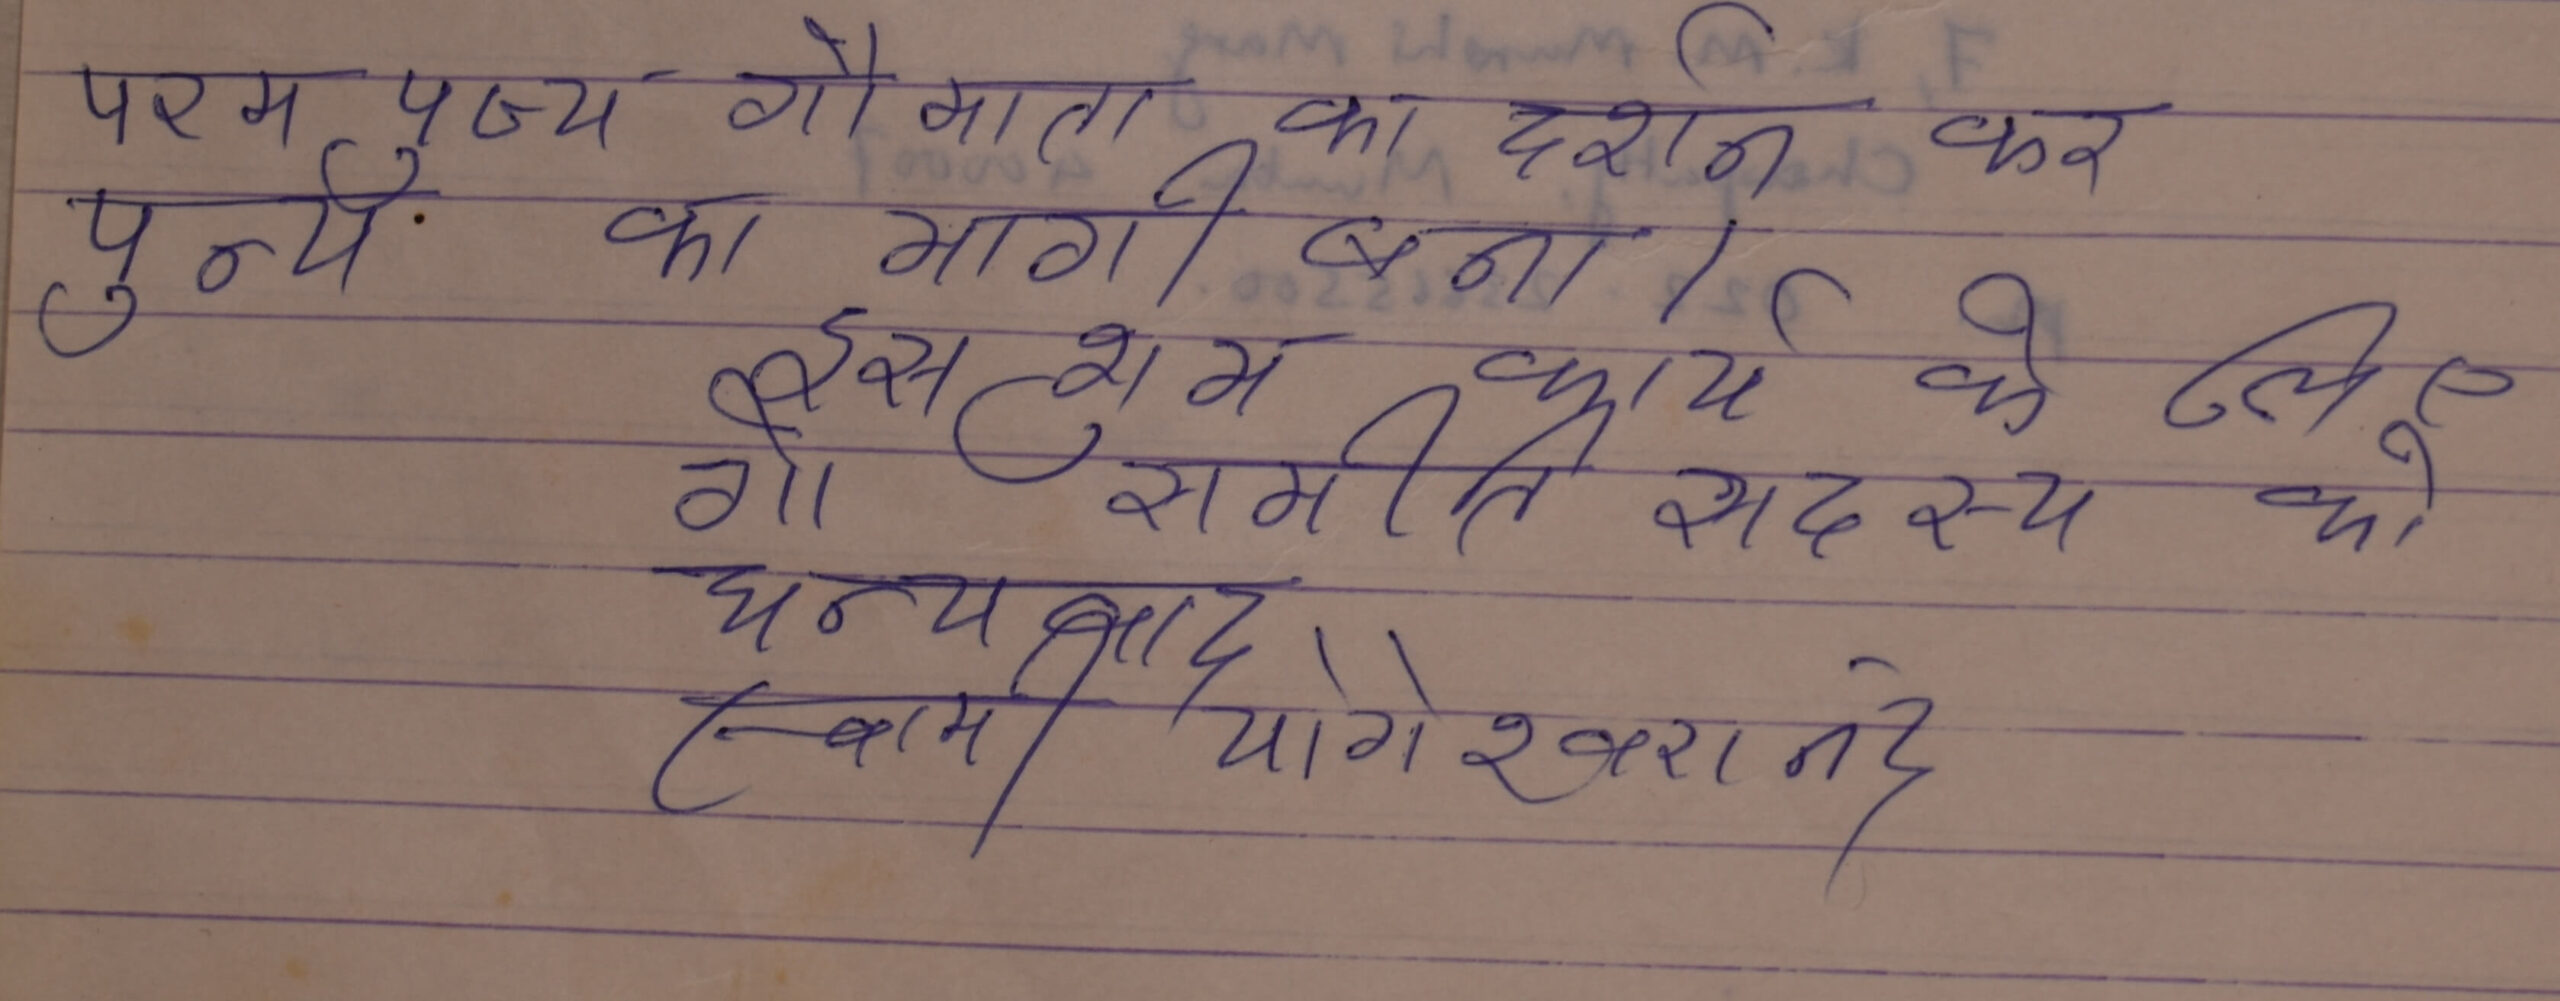 परम पुज्य गौ माता का दर्शन कर
पुन्य का भागी बना।
इस शुभ कार्य के लिए
गो समीति सदस्य को
धन्यबाद
स्वामी योगेश्वरानंद